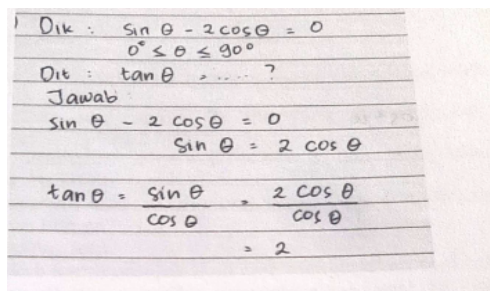 1 Dik : Sin θ - 2 cos θ = 0
0° ≤ θ ≤ 90°
Dit : tan θ = .... ?
Jawab
Sin θ - 2 cos θ = 0
Sin θ = 2 cos θ
tan θ = Sin θ / cos θ = 2 cos θ / cos θ
= 2